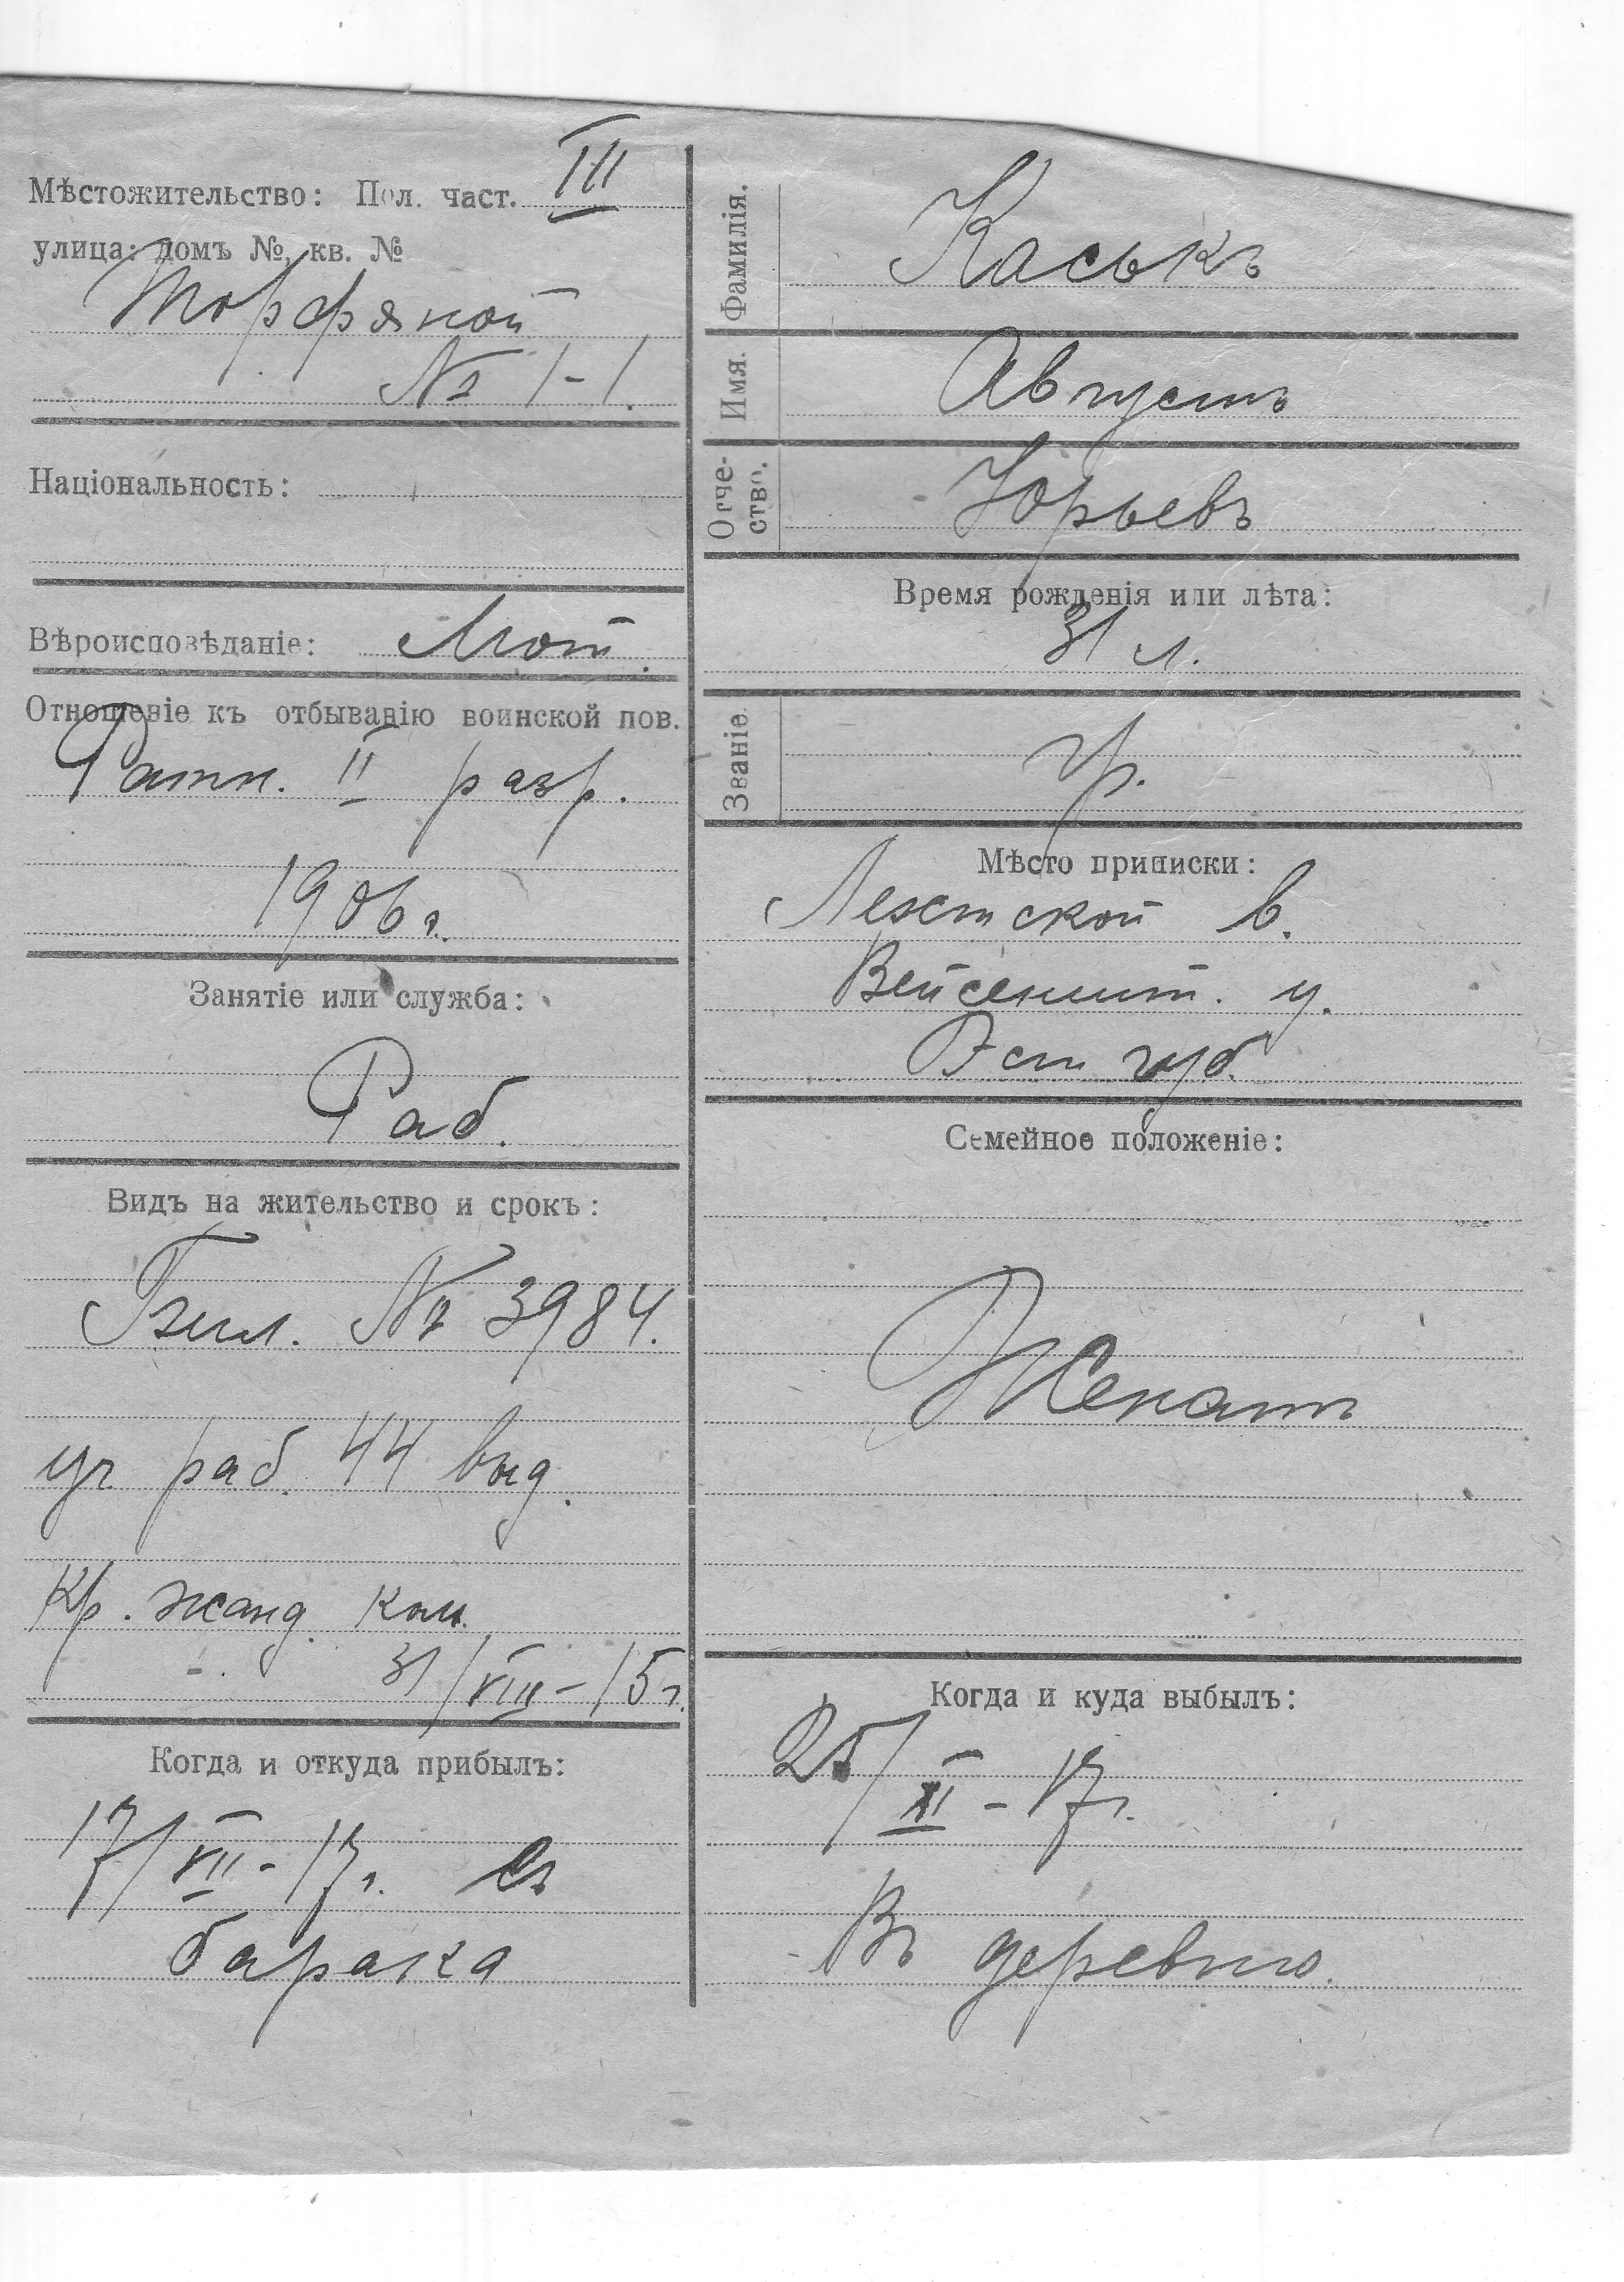 Мѣстожительство: Пол. част. III
улица: домъ №, кв. №
Торфяной
№ 1-1.
Національность:
Вѣроисповѣданіе: Лют.
Отношеніе къ отбыванію воинской пов.
Ратн. II разр.
1906 г.
Занятіе или служба:
Раб.
Видъ на жительство и срокъ:
Бил. № 3984.
уч раб. 44 выд.
Кр. жанд. ком.
31/VIII-15 г.
Когда и откуда прибылъ:
17/VII-17 г. съ
барака
Фамилія. Каськъ
Имя. Августъ
Отче-
ство. Юрьевъ
Время рожденія или лѣта:
31 л.
Званіе
Мѣсто приписки:
в.
Вейсеншт. у.
Эст губ.
Семейное положеніе:
Женатъ
Когда и куда выбылъ:
25/XI-17 г.
Въ деревню.